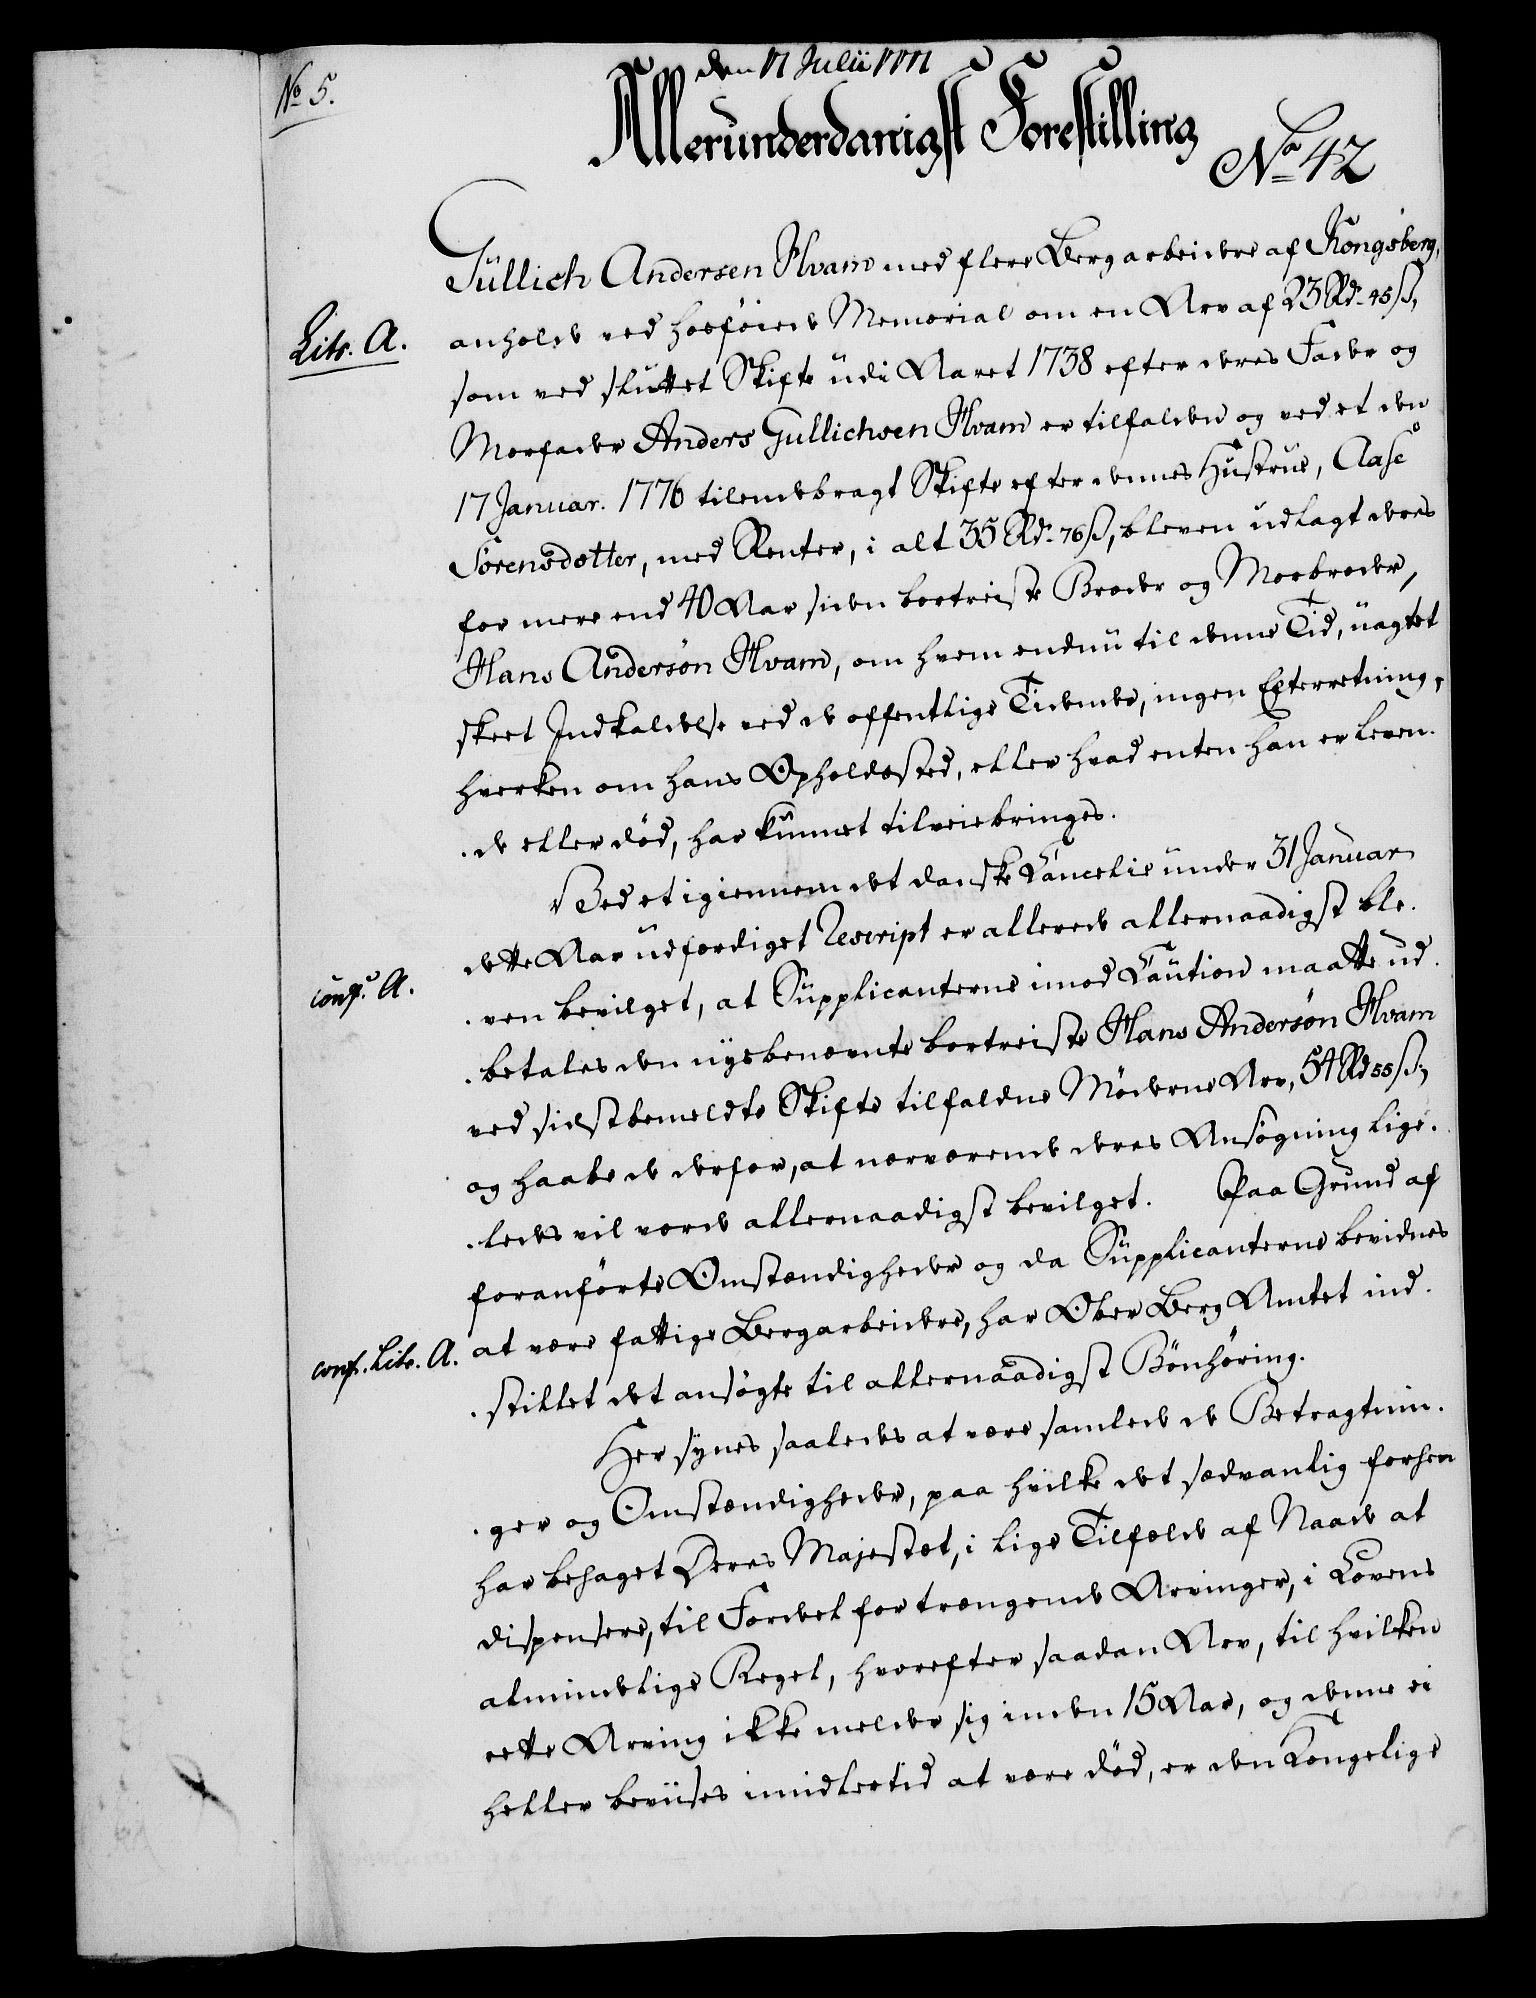 No 5.
den 17 Julii 1777
Allerunderdanigst Forestilling
No 42
Gullich Andersen Hvam med flere Bergarbeidere af Kongsberg,
Litr. A.
anholde ved hosføiede Memorial om en Arv af 23 Rdr. 45 ß,
som ved sluttet Skifte udi Aaret 1738 efter deres Fader og
Morfader Anders Gullichsen Hvam er tilfalden og ved et den
17 Januar. 1776 tilendebragt Skifte efter dennes Hustrue, Aase
Sørensdotter, med Renter, i alt 35 Rdr. 76 ß, bleven udlagt deres
for mere end 40 Aar siden bortreiste Broder og Morbroder,
Hans Andersøn Hvam, om hvem endnu til denne Tid, uagtet
skeet Indkaldelse ved de offentlige Tidender, ingen Efterretning,
hverken om hans Opholdssted, eller hvad enten han er leven-
-de eller død, har kunnet tilveiebringes.
Ved et igiennem det danske Cancelie under 31 Januar
dette Aar udfærdiget Rescript er allerede allernaadigst ble-
conf. A.
-ven bevilget, at Supplicanterne imod Caution maatte ud-
-betales den nysbenævnte bortreiste Hans Andersøn Hvam
ved sidstbemeldte Skifte tilfaldne Møderne Arv, 54 Rd 55 ß,
og haabe de derfor, at nærværende deres Ansøgning lige-
-ledes vil vorde allernaadigst bevilget. Paa Grund af
foranførte Omstændigheder og da Supplicanterne bevidnes
conf. Litr. A.
at være fattige Bergarbeidere, har Ober Berg Amtet ind-
-stillet det ansøgte til allernaadigst Bønhøring.
Her synes saaledes at være samlede de Betragtnin-
-ger og Omstændigheder, paa hvilke det sædvanlig forhen
har behaget Deres Majestæt, i lige Tilfælde af Naade at
dispensere, til Fordel for trængende Arvinger, i Lovens
almindelige Regel, hvorefter saadan Arv, til hvilken
rette Arving ikke melder sig inden 15 Aar, og denne ei
heller beviises imidlertid at være død, er den Kongelige